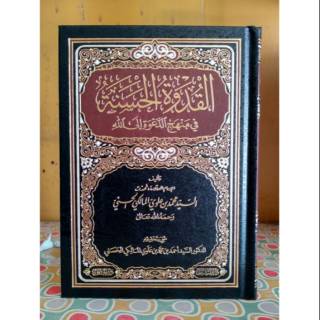 القدوة الحسنة
في منهج الدعوة إلى الله
تأليف
السيد محمد بن علوي المالكي الحسني
رحمه الله تعالى
الدكتور السيد أحمد بن محمد بن علوي المالكي الحسني